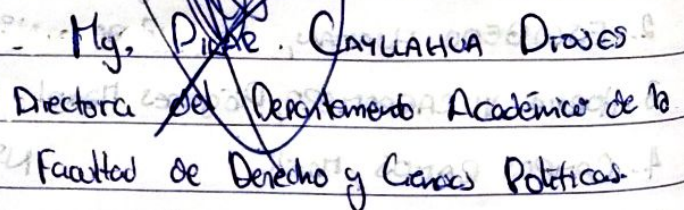 - Mg. Pilar. CAYLLAHUA DIOSES
Directora del Departamento Académico de la
Facultad de Derecho y Ciencias Políticas.